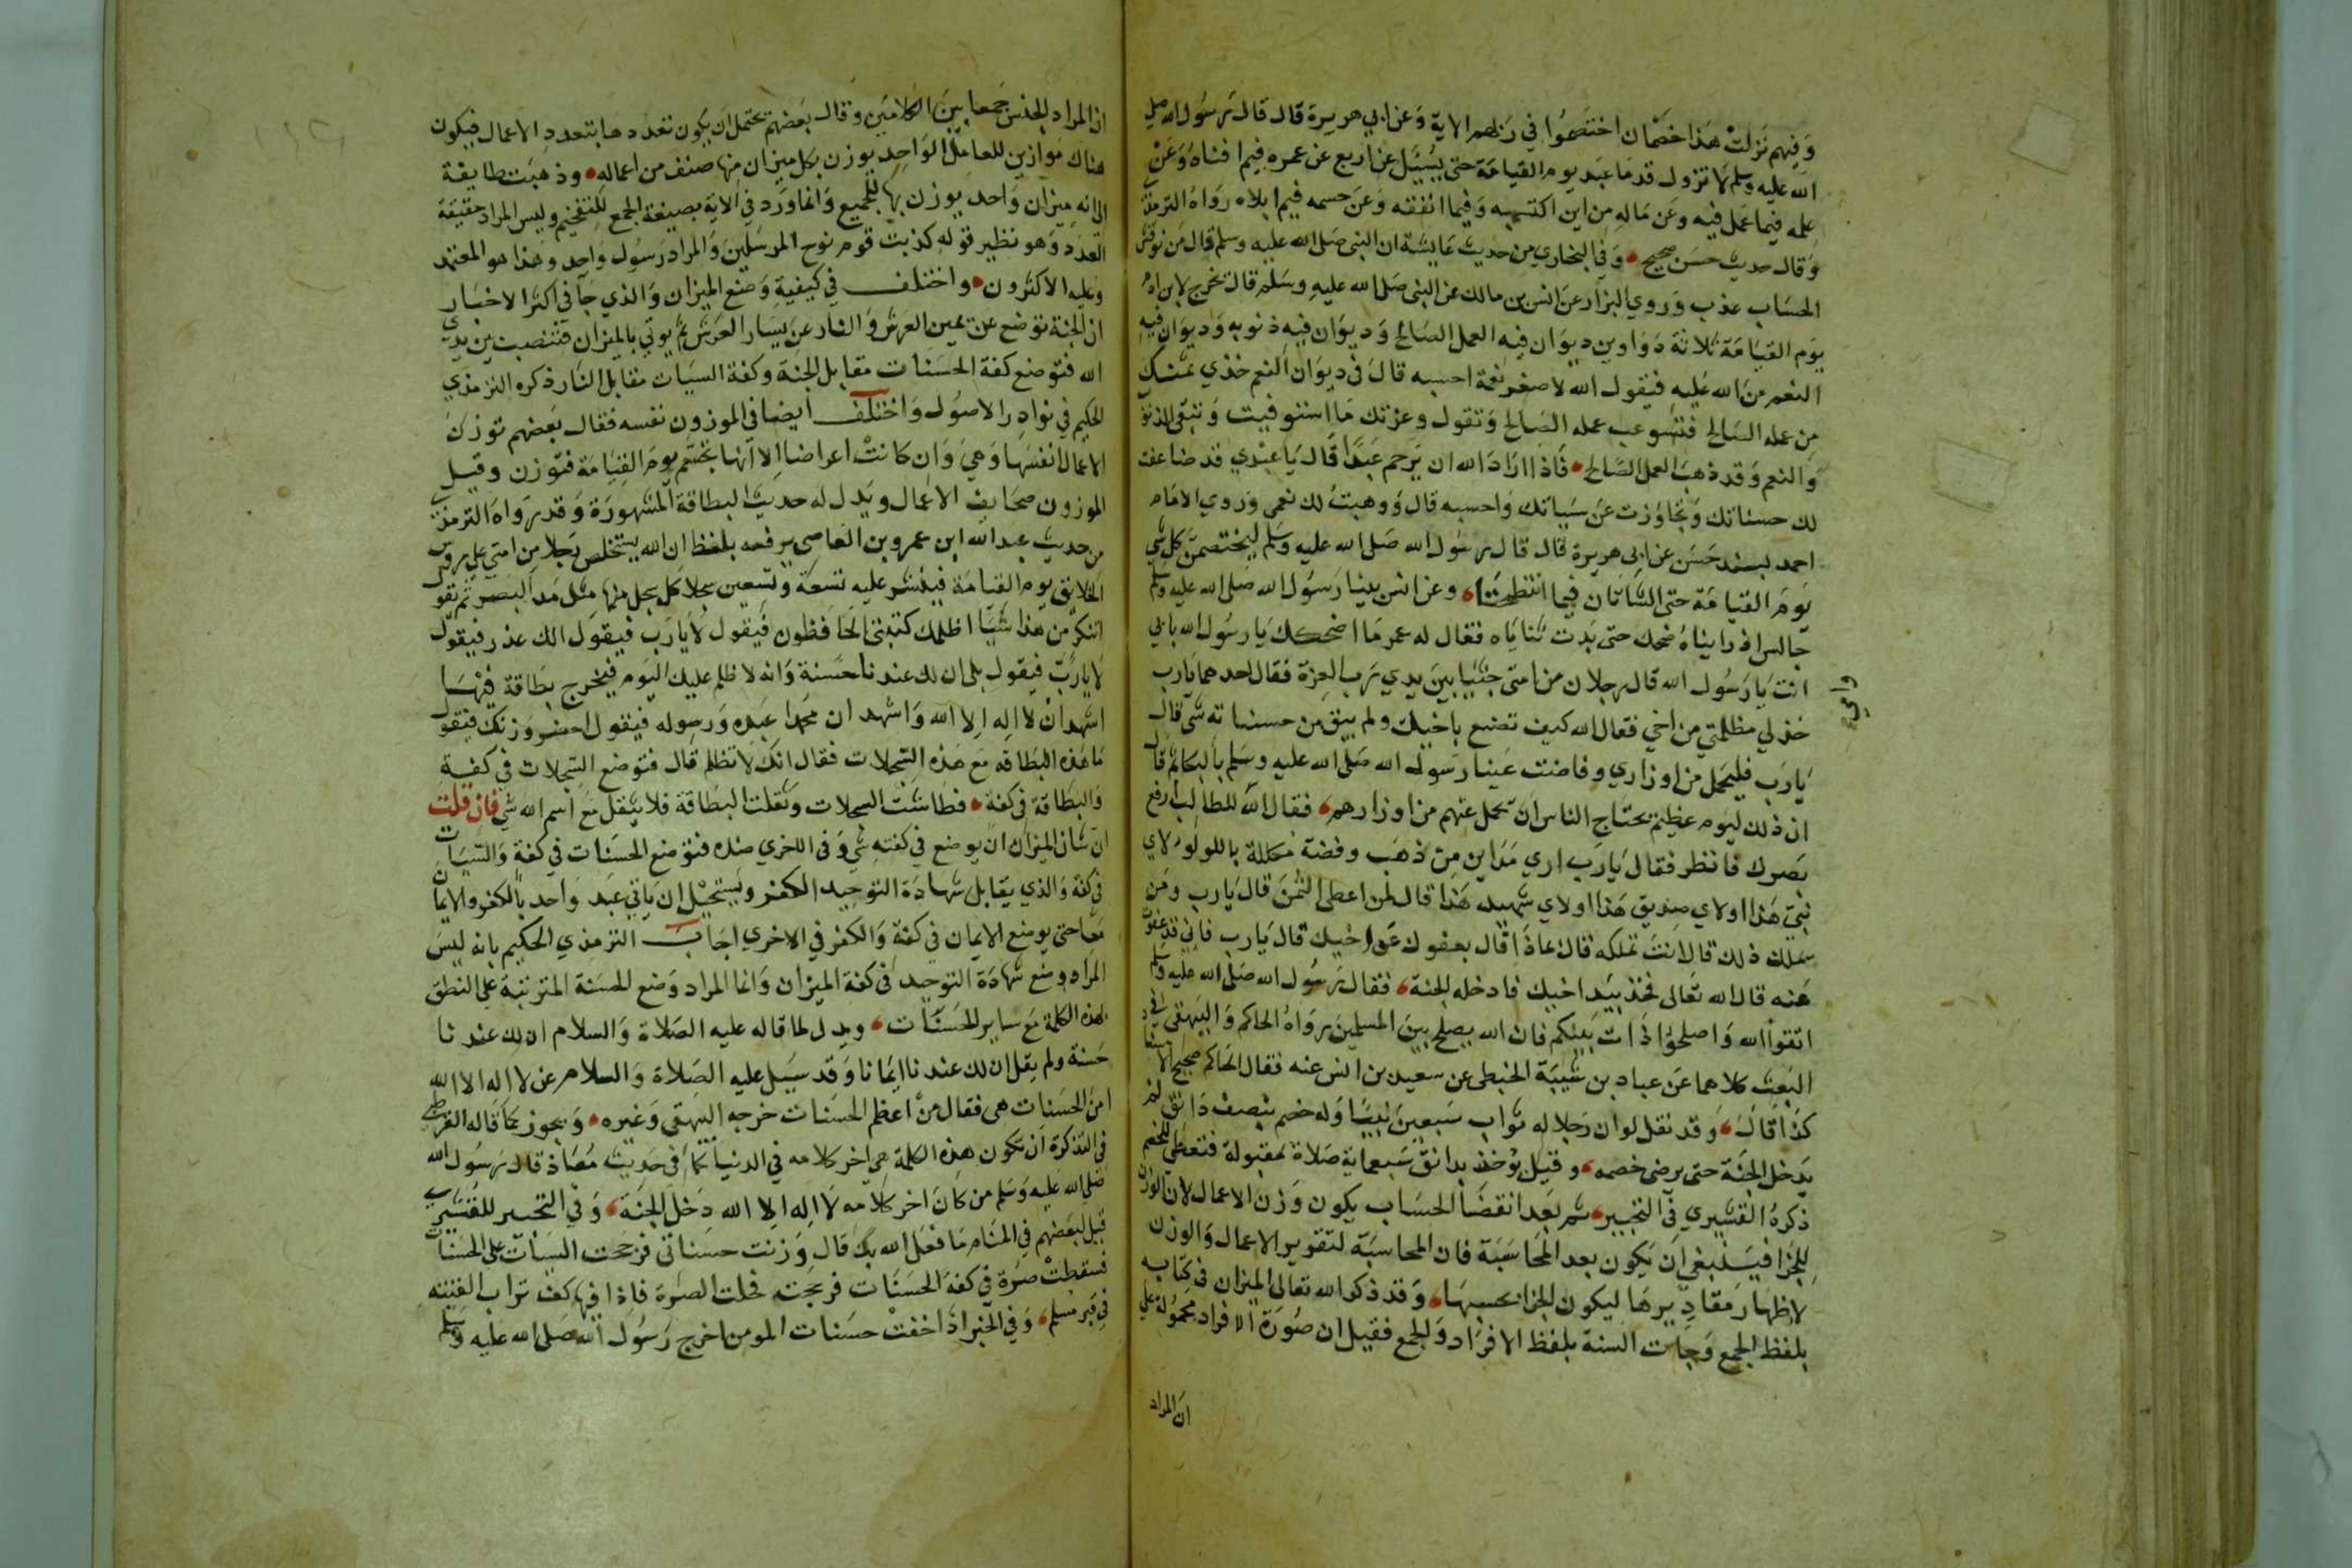 وفيهم نزلت هذا خصمان اختصموا في ربهم الاية وعن ابي هريرة قال قال رسول الله صلى
الله عليه وسلم لا تزول قدما عبد يوم القيامة حتى يسئل عن اربع عن عمره فيم افناه وعن
علمه فيما عمل فيه وعن ماله من اين اكتسبه وفيما انفقه وعن جسمه فيم ابلاه رواه الترمذي
وقال حديث حسن صحيح وفي البخاري من حديث عايشة ان النبي صلى الله عليه وسلم قال من نوقش
الحساب عذب وروي البزار عن انس بن مالك عن النبي صلى الله عليه وسلم قال تخرج لابن ادم
يوم القيامة ثلاثة دواوين ديوان فيه العمل الصالح وديوان فيه ذنوبه وديوان فيه
النعم من الله عليه فيقول الله لاصغر نعمة احسبه قال في ديوان النعم خذي ثمنك
من عمله الصالح فتستوعب عمله الصالح وتقول وعزتك ما استوفيت وتبقى الذنوب
والنعم وقد ذهب العمل الصالح فاذا اراد الله ان يرحم عبدا قال يا عبدي قد ضاعفت
لك حسناتك وتجاوزت عن سيياتك واحسبه قال ووهبت لك نعمي وروي الامام
احمد بسند حسن عن ابي هريرة قال قال رسول الله صلى الله عليه وسلم ليختصمن كل شي
يوم القيامة حتى الشاتان فيما انتطحتا وعن انس بينا رسول الله صلى الله عليه وسلم
جالس اذ رايناه ضحك حتى بدت ثناياه فقال له عمر ما اضحكك يا رسول الله بابي
انت يا رسول الله قال رجلان من امتي جثيا بين يدي رب العزة فقال احدهما يارب
وامي
خذ لي مظلمتي من اخي فقال الله كيف تصنع باخيك ولم يبق من حسناته شي قال
يارب فليحمل من اوزاري وفاضت عينا رسول الله صلى الله عليه وسلم بالبكا ثم قال
ان ذلك ليوم عظيم يحتاج الناس ان تحمل عنهم من اوزارهم فقال الله للطالب ارفع
بصرك فانظر فقال يارب اري مداين من ذهب وفضة مكللة باللولو لاي
نبي هذا او لاي صديق هذا او لاي شهيد هذا قال لمن اعطى الثمن قال يارب ومن
يملك ذلك قال انت تملكه قال بماذا قال بعفوك عن اخيك قال يارب فاني قد عفوت
عنه قال الله تعالى فخذ بيد اخيك فادخله الجنة فقال رسول الله صلى الله عليه وسلم
اتقوا الله واصلحوا ذات بينكم فان الله يصلح بين المسلمين رواه الحاكم والبيهقي في
البعث كلاهما عن عباد بن شيبة الحبطى عن سعيد بن انس عنه فقال الحاكم صحيح الاسناد
كذا قال وقد نقل لو ان رجلا له ثواب سبعين نبيا وله خصم بنصف دانق لم
يدخل الجنة حتى يرضى خصمه وقيل يوخذ بدانق سبعماية صلاة مقبولة فتعطى للخصم
ذكره القشيري في التحبير ثم بعد انقضا الحساب يكون وزن الاعمال لان الوزن
للجزا فينبغي ان يكون بعد المحاسبة فان المحاسبة لتقوير الاعمال والوزن
لاظهار مقاديرها ليكون الجزا بحسبها وقد ذكر الله تعالى الميزان في كتابه
بلفظ الجمع وجات السنة بلفظ الافراد والجمع فقيل ان صورة الافراد محمولة على
ان المراد
ان المراد الجنس جمعا بين الكلامين وقال بعضهم يحتمل ان يكون تعددها بتعدد الاعمال فيكون
هناك موازين للعامل الواحد يوزن بكل ميزان منها صنف من اعماله وذهبت طايفة
الى انه ميزان واحد يوزن بها للجميع وانما ورد في الاية بصيغة الجمع للتفخيم وليس المراد حقيقة
العدد وهو نظير قوله كذبت قوم نوح المرسلين والمراد رسول واحد وهذا هو المعتمد
وعليه الاكثرون واختلف في كيفية وضع الميزان والذي جا في اكثر الاخبار
ان الجنة توضع عن يمين العرش والنار عن يسار العرش ثم يوتي بالميزان فتنصب بين يدي
الله فتوضع كفة الحسنات مقابل الجنة وكفة السيات مقابل النار ذكره الترمذي
الحكيم في نوادر الاصول واختلف ايضا في الموزون نفسه فقال بعضهم توزن
الاعمال انفسها وهي وان كانت اعراضا الا انها تجسم يوم القيامة فتوزن وقيل
الموزون صحايف الاعمال ويدل له حديث البطاقة المشهورة وقد رواه الترمذي
من حديث عبد الله ابن عمرو بن العاصي يرفعه بلفظ ان الله يستخلص رجلا من امتي على روس
الخلايق يوم القيامة فينشر عليه تسعة وتسعين سجلا كل سجل منها مثل مد البصر ثم يقول
اتنكر من هذا شيا اظلمك كتبتي الحافظون فيقول لا يارب فيقول الك عذر فيقول
لا يارب فيقول بلى ان لك عندنا حسنة وانه لا ظلم عليك اليوم فيخرج بطاقة فيها
اشهد ان لا اله الا الله واشهد ان محمدا عبده ورسوله فيقول احضر وزنك فيقول
ما هذه البطاقة مع هذه السجلات فقال انك لا تظلم قال فتوضع السجلات في كفة
والبطاقة في كفة فطاشت السجلات وثقلت البطاقة فلا يثقل مع اسم الله شي فان قلت
ان شان الميزان ان يوضع في كفته شي وفي الاخري ضده فتوضع الحسنات في كفة والسيات
في كفة والذي يقابل شهادة التوحيد الكفر ويستحيل ان ياتي عبد واحد بالكفر والايمان
معا حتى يوضع الايمان في كفة والكفر في الاخري اجاب الترمذي الحكيم بانه ليس
المراد وضع شهادة التوحيد في كفة الميزان وانما المراد وضع الحسنة المترتبة على النطق
بهذه الكلمة مع ساير الحسنات ويدل لما قاله عليه الصلاة والسلام ان لك عندنا
حسنة ولم يقل ان لك عندنا ايمانا وقد سيل عليه الصلاة والسلام عن لا اله الا الله
امن الحسنات هي فقال من اعظم الحسنات خرجه البيهقي وغيره ويجوز كما قاله القرطبي
في التذكرة ان تكون هذه الكلمة هي اخر كلامه في الدنيا كما في حديث معاذ قال رسول الله
صلى الله عليه وسلم من كان اخر كلامه لا اله الا الله دخل الجنة وفي التحبير للقشيري
قيل لبعضهم في المنام ما فعل الله بك قال وزنت حسناتي فرجحت السيات على الحسنات
فسقطت صرة في كفة الحسنات فرجحت فحلت الصرة فاذا فيها كف تراب القيته
في قبر مسلم وفي الخبر اذا خفت حسنات المومن اخرج رسول الله صلى الله عليه وسلم